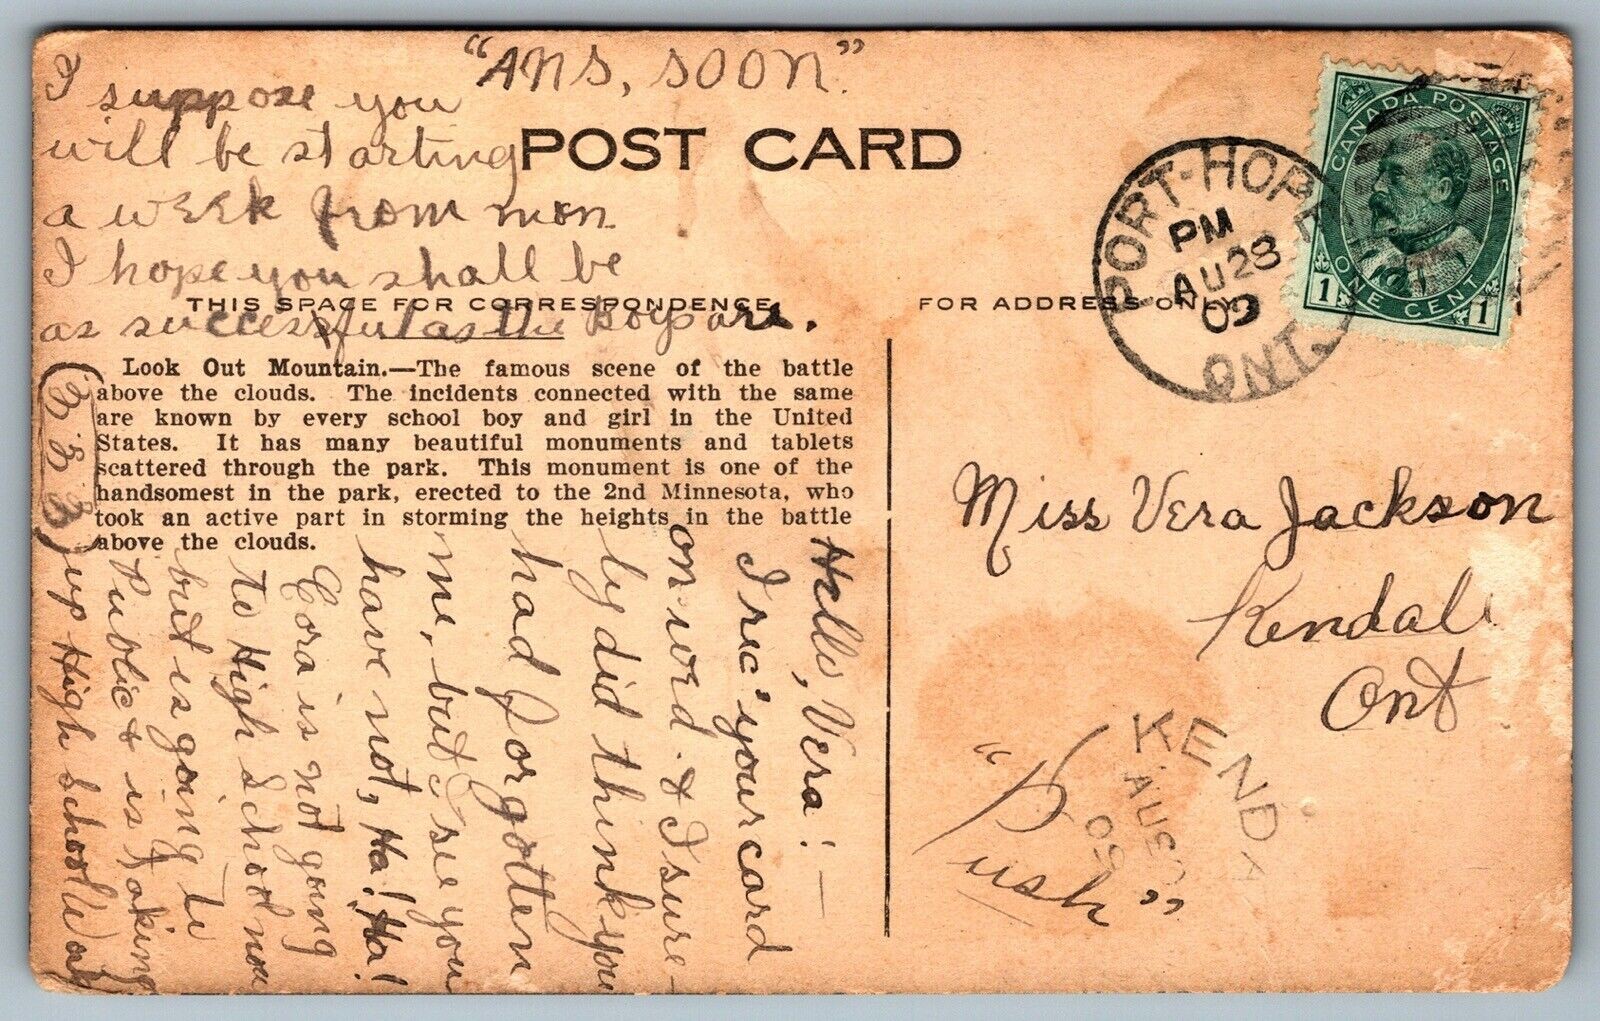 "ANS, SOON"
POST CARD
I suppose you
will be starting
a week from mon
I hope you shall be
as successful as the Boys are.
THIS SPACE FOR CORRESPONDENCE
FOR ADDRESS ONLY
Look Out Mountain.—The famous scene of the battle
above the clouds. The incidents connected with the same
are known by every school boy and girl in the United
States. It has many beautiful monuments and tablets
scattered through the park. This monument is one of the
handsomest in the park, erected to the 2nd Minnesota, who
took an active part in storming the heights in the battle
above the clouds.
Hello, Vera! —
I rec' your card
on wed. & I sure-
ly did think you
had forgotten
me, but I see you
have not, Ha! Ha!
Cora is not going
to High School now
but is going to
Public & is taking
up High School Work
CANADA POSTAGE
1 ONE CENT 1
PORT-HOPE
PM
AU 28
09
ONT.
Miss Vera Jackson
Kendall
Ont
KENDA
AU
09
"Push"